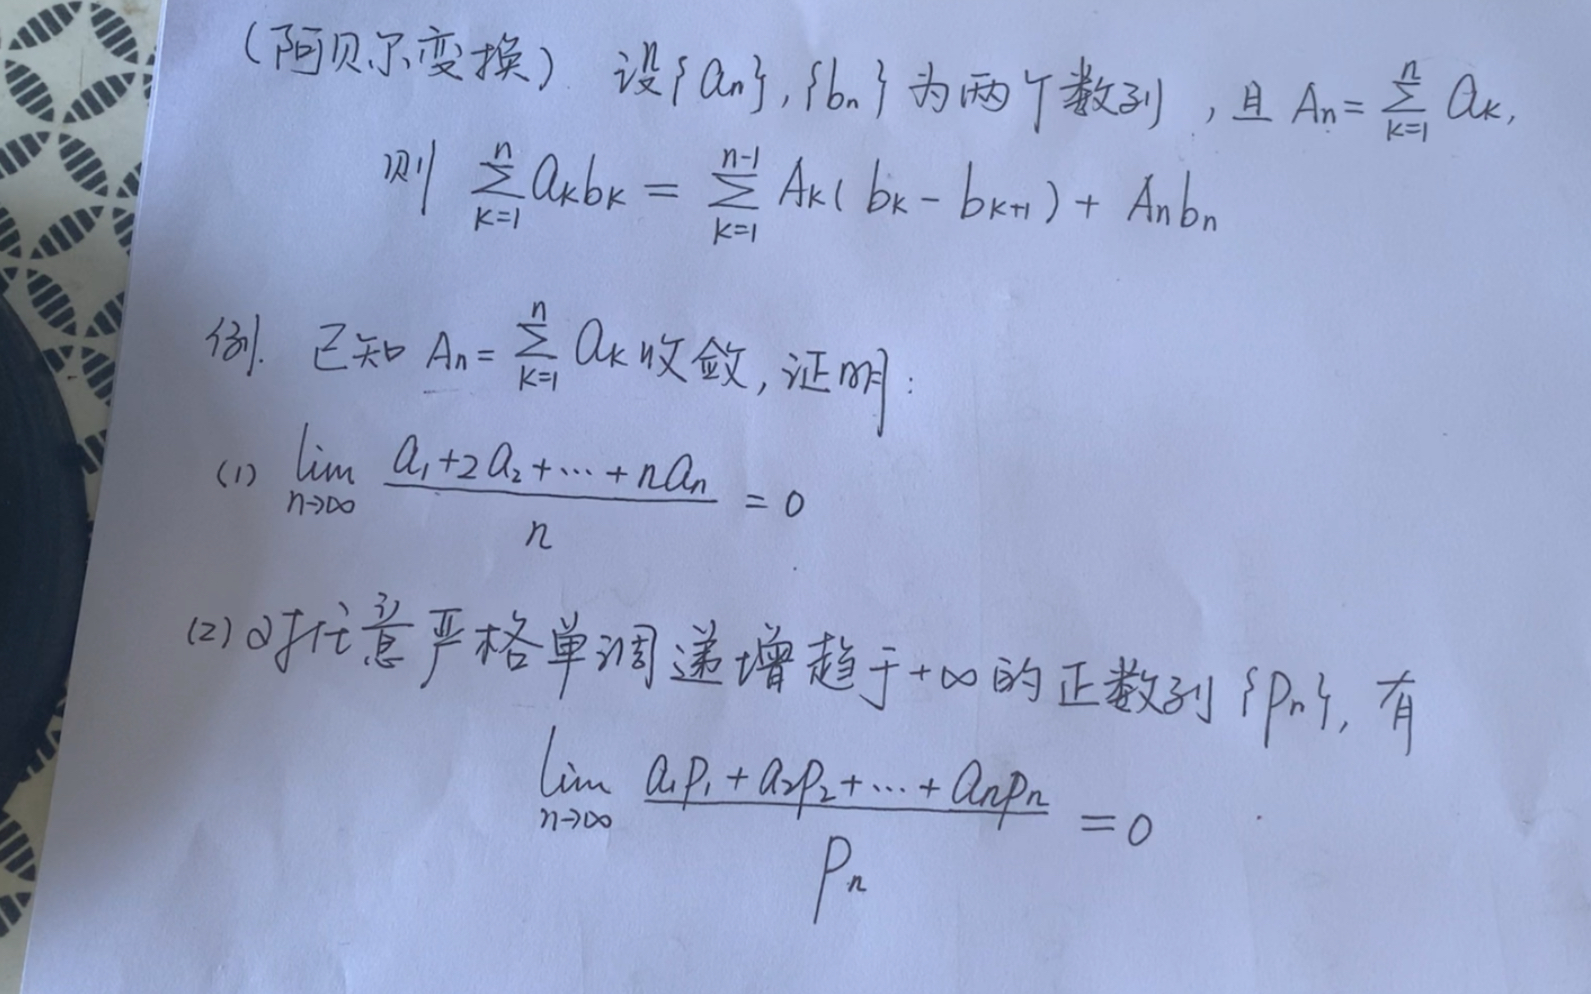 (阿贝尔变换) 设{an},{bn}为两个数列,且 An=∑_{k=1}^{n} ak,
则 ∑_{k=1}^{n} akbk = ∑_{k=1}^{n-1} Ak(bk-bk+1)+Anbn
例. 已知 An=∑_{k=1}^{n} ak收敛,证明:
(1) lim_{n→∞} (a1+2a2+…+nan)/n = 0
(2)对任意严格单调递增趋于+∞的正数列{pn},有
lim_{n→∞} (a1p1+a2p2+…+anpn)/pn =0